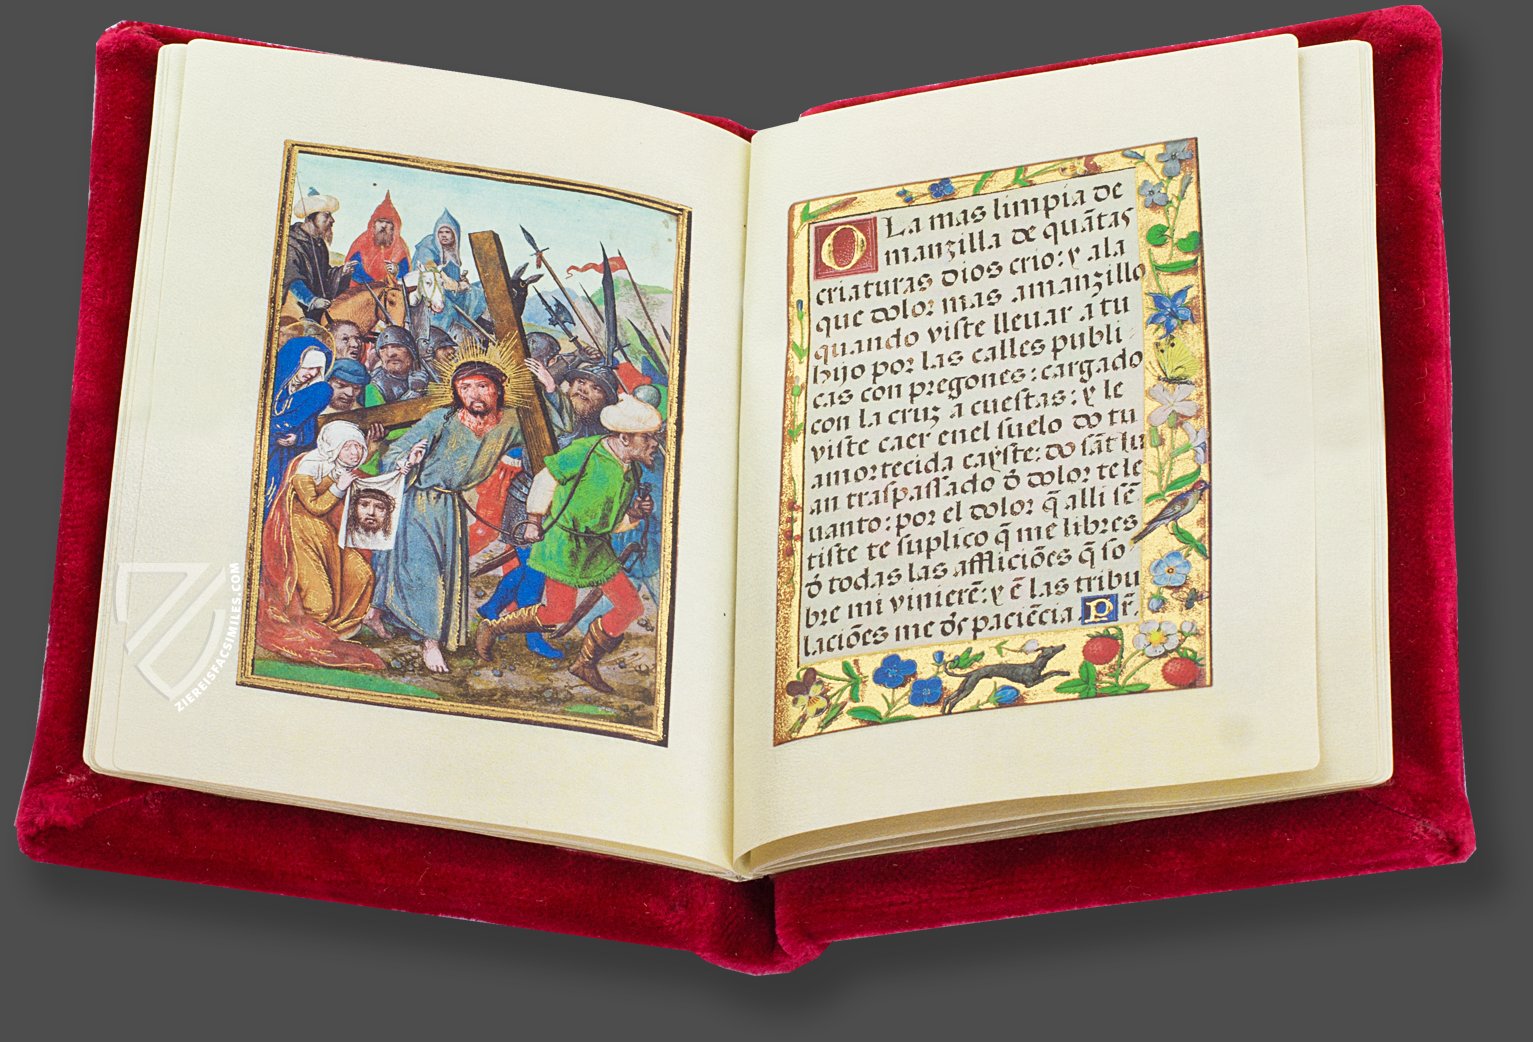 ZIEREISFACSIMILES.COM
O La mas limpia de
manzilla de quãtas
criaturas dios crio: y ala
que dolor mas amanzillo
quando viste lleuar a tu
hijo por las calles publi-
cas con pregones: cargado
con la cruz a cuestas: y le
viste caer enel suelo do tu
amortecida cayste: do sãt lu
an traspassado ð dolor te le
uanto: por el dolor q̃ alli sẽ
tiste te suplico q̃ me libres
ð todas las affliciões q̃ so-
bre mi vinierẽ: y ẽ las tribu
laciões me ðs paciẽcia. Pr̃.